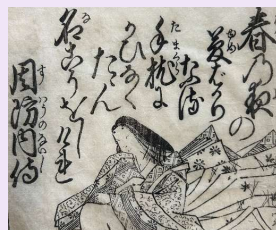 春乃夜の
夢ばかり
なる
手枕に
かひなく
たゝん
名こそをしけれ
周防内侍